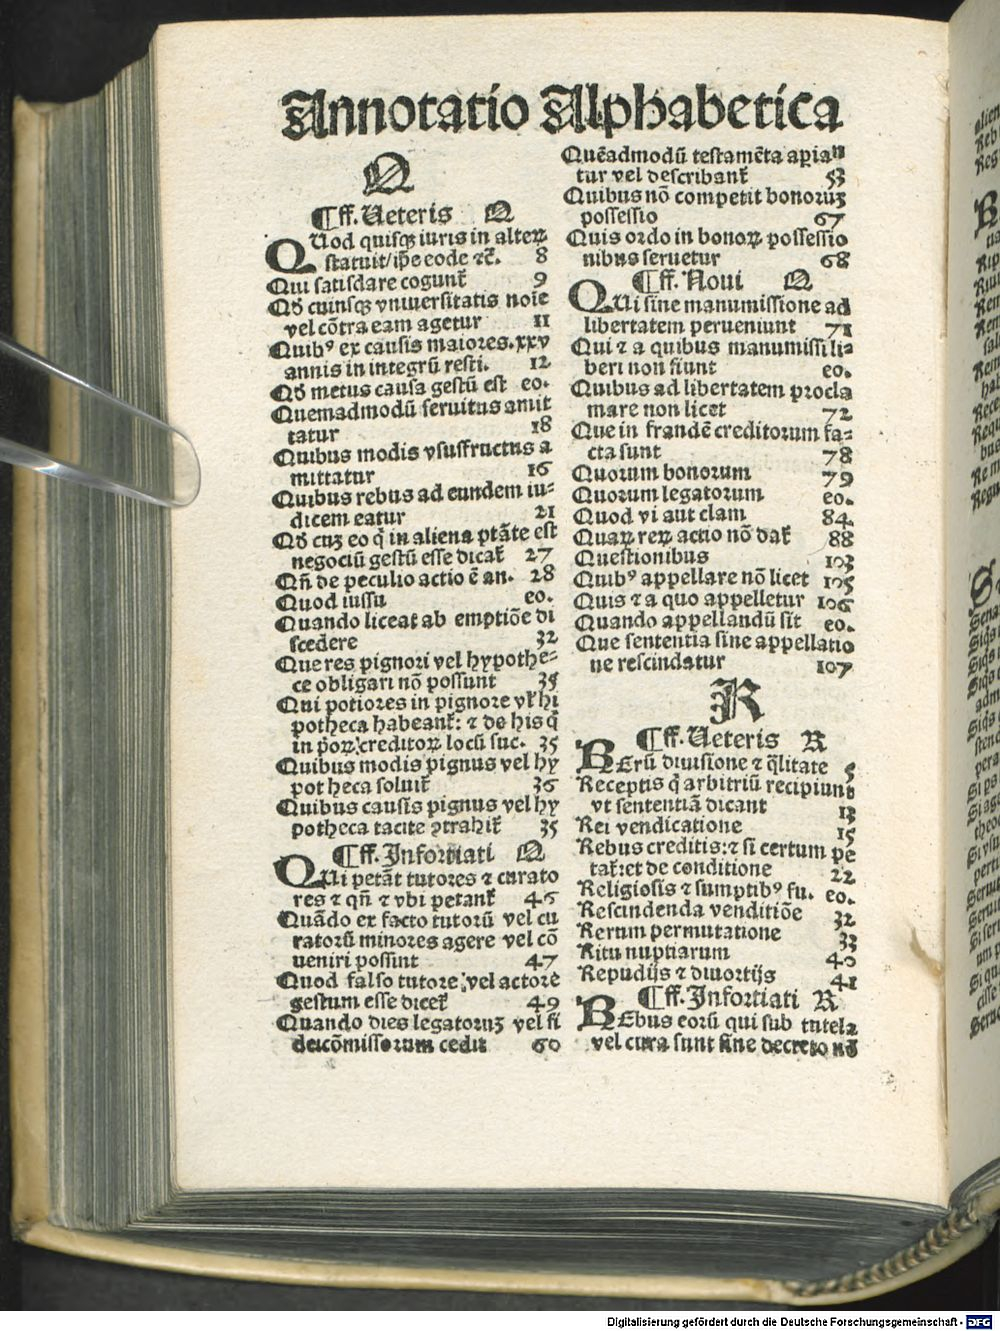 Annotatio Alphabetica
Q
¶ff. Ueteris Q
QUod quisqꝫ iuris in alteꝝ
statuit/ip̄e eodē ⁊c̄. 8
Qui satisdare cogunt᷑ 9
Qđ cuiusqꝫ vniuersitatis noīe
vel cōtra eam agetur 11
Quibꝰ ex causis maiores.xxv
annis in integrū resti. 12
Qđ metus causa gestū est eo.
Quemadmodū seruitus amit
tatur 18
Quibus modis vsusfructus a
mittatur 16
Quibus rebus ad eundem iu-
dicem eatur 21
Qđ cuꝫ eo q̄ in aliena ptāte est
negociū gestū esse dicat᷑ 27
Qn̄ de peculio actio ē an. 28
Quod iussu eo.
Quando liceat ab emptiōe di
scedere 32
Que res pignori vel hypothe-
ce obligari nō possunt 35
Qui potiores in pignore vl᷑ hi
potheca habeant᷑: ⁊ de his q̄
in p̄oꝝ creditoꝝ locū suc. 35
Quibus modis pignus vel hy
pot heca soluit᷑ 36
Quibus causis pignus vel hy
potheca tacite ꝯtrahit᷑ 35
¶ff. Infortiati Q
QUi petāt tutores ⁊ curato
res ⁊ qn̄ ⁊ vbi petant᷑ 46
Quādo ex facto tutorū vel cu
ratorū minores agere vel cō
ueniri possint 47
Quod falso tutore vel actore
gestum esse dicet᷑ 49
Quando dies legatoruꝫ vel fi
deicōmissorum cedit 60
Quēadmodū testamēta apian
tur vel describant᷑ 53
Quibus nō competit bonoruꝫ
possessio 67
Quis ordo in bonoꝝ possessio
nibus seruetur 68
¶ff. Noui Q
QUi sine manumissione ad
libertatem perueniunt 71
Qui ⁊ a quibus manumissi li-
beri non fiunt eo.
Quibus ad libertatem procla
mare non licet 72
Que in fraudē creditorum fa-
cta sunt 78
Quorum bonorum 79
Quorum legatorum eo.
Quod vi aut clam 84.
Quaꝝ reꝝ actio nō dat᷑ 88
Questionibus 103
Quibꝰ appellare nō licet 105
Quis ⁊ a quo appelletur 106
Quando appellandū sit eo.
Que sententia sine appellatio
ne rescindatur 107
R
¶ff. Ueteris R
RErū diuisione ⁊ q̄litate 5
Receptis q̄ arbitriū recipiunt
vt sententiā dicant 13
Rei vendicatione 15
Rebus creditis:⁊ si certum pe
tat᷑:et de conditione 22
Religiosis ⁊ sumptibꝰ fu. eo.
Rescindenda venditiōe 32
Rerum permutatione 33
Ritu nuptiarum 40
Repudijs ⁊ diuortijs 41
¶ff. Infortiati R
REbus eorū qui sub tutela
vel cura sunt sine decreto nō
Digitalisierung gefördert durch die Deutsche Forschungsgemeinschaft - DFG